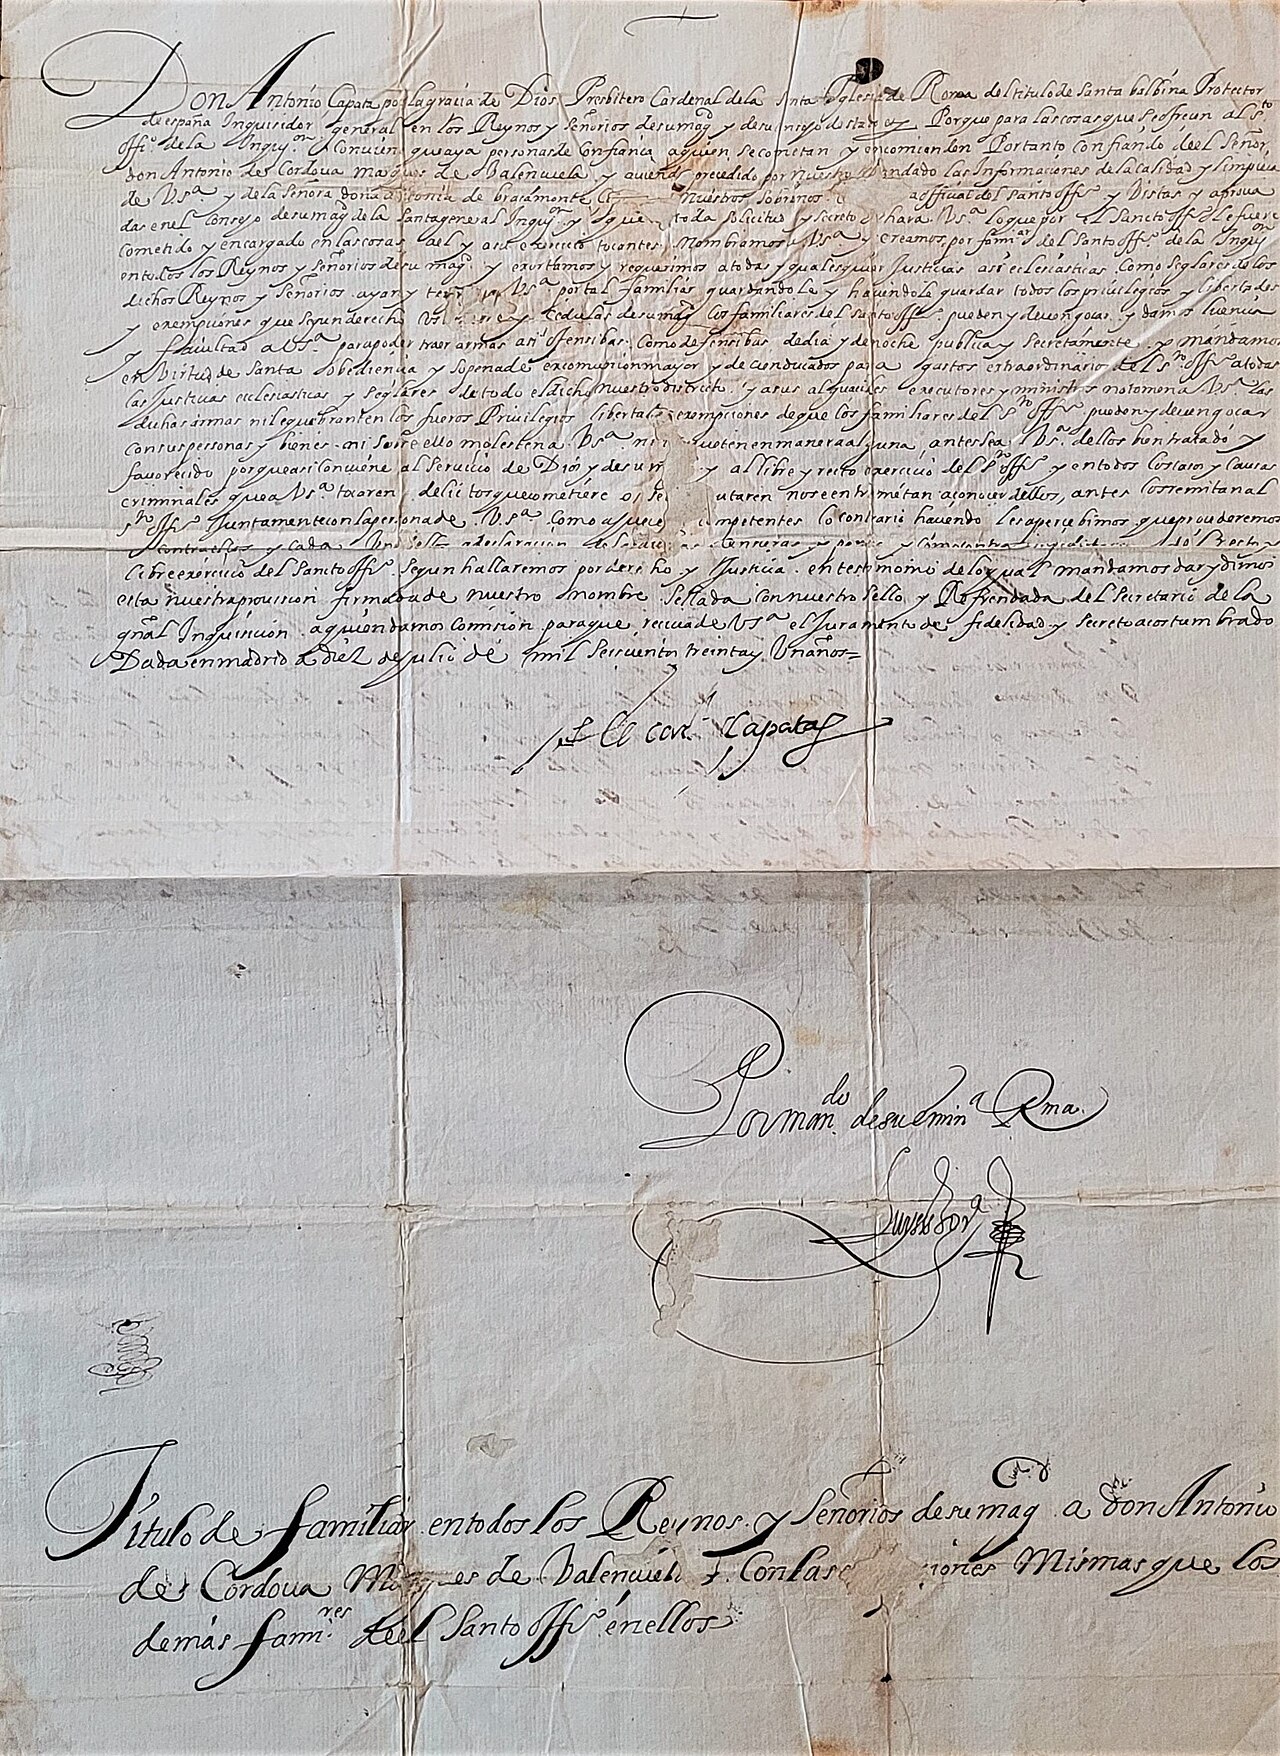 Don Antonio Capata por la gracia de Dios Presbitero Cardenal de la Santa Yglesia de Roma del titulo de Santa balbina Protector
de españa Inquisidor general en los Reynos y señorios de su mag.d y de su consejo de Porque para las cosas que se ofrecen al S.to
offi.o de la Inqui.on Conviene que aya personas de Confiança a quien se cometan y encomienden Por tanto Confiando de el Señor
don Antonio de Cordova marques de Valençuela y aviendo precedido por nuestro mandado las Informaciones de la calidad y limpieça
de V.s.a y de la Señora doña de bracamonte nuestros sobrinos official del Santo offi.o y Vistas y aprova
das en el Consejo de su mag.d de la santa general Inqui.on y que toda solicitud y secreto hara V.s.a lo que por el Sancto offi.o le fuere
cometido y encargado en las cosas a el y a su exercicio tocantes Nombramos a V.s.a y creamos por fami.ar del Santo offi.o de la Inqui.on
en todos los Reynos y señorios de su mag.d y exortamos y requerimos a todas y qualesquier Justicias asi eclesiasticas Como seglares de los
dichos Reynos y Señorios ayan y tengan V.s.a por tal familiar guardandole y haciendole guardar todos los privilegios y libertades
y exempciones que segun derecho y Cedulas de su mag.d los familiares del Santo offi.o pueden y deven goçar y damos licencia
y facultad a V.s.a para poder traer armas asi ofensibas Como defensibas de dia y de noche publica y Secretamente y mandamos
en Virtud de Santa obediencia y so pena de excomunion mayor y de ducados para gastos extraordinarios del S.to offi.o a todas
las Justicias ecclesiasticas y Seglares de todo el dicho nuestro districto y a sus alguaciles executores y ministros no tomen a V.s.a las
dichas armas ni le quebranten los fueros Privilegios libertades exempciones de que los familiares del S.to offi.o pueden y deven goçar
con sus personas y bienes ni sobre ello molesten a V.s.a ni en manera alguna, antes sea V.s.a dellos bien tratado y
favorecido porque asi conviene al Servicio de Dios y de su m y al libre y recto exercicio del S.to offi.o y en todos los casos y causas
criminales que a V.s.a tocaren delictos que cometiere o se utaren no se entrometan a conocer dellos, antes los remitan al
S.to offi.o Juntamente con la persona de V.s.a Como a Juezes competentes lo contrario haciendo les apercebimos que procederemos
contra ellos y cada Uno
Libre exercicio del Sancto offi.o segun hallaremos por derecho y Justicia en testimonio de lo qual mandamos dar y dimos
esta nuestra provission firmada de nuestro nombre Sellada con nuestro Sello y Refrendada del Secretario de la
gn̄al Inquisicion a quien damos Comision para que reciva de V.s.a el Juramento de fidelidad y secreto acostumbrado
Dada en madrid a diez de Julio de mil Seiscientos treinta y Un años=
El car.l Capata
Por man.do de su emin.a Rma.
Título de familiar en todos los Reynos y Señorios de su mag.d a don Antonio
de Cordova Marques de Valençuela Con las ciones Mismas que los
demás fami.res del Santo offi.o en ellos